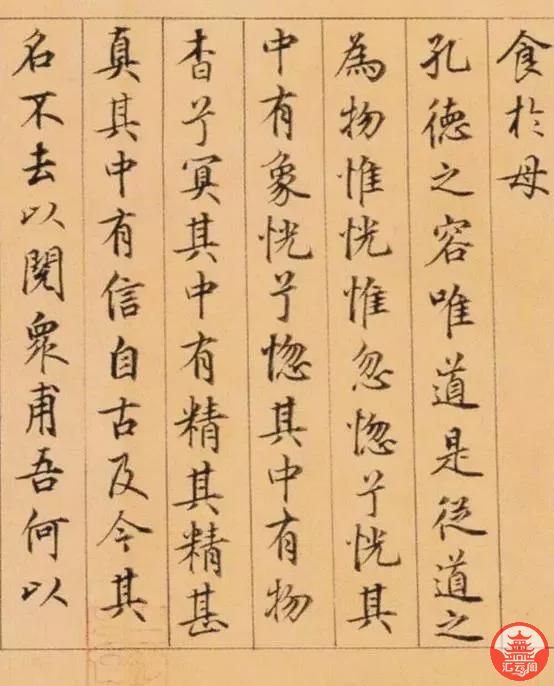 食於母
孔德之容唯道是從道之
為物惟恍惟忽惚兮恍其
中有象恍兮惚其中有物
杳兮冥其中有精其精甚
真其中有信自古及今其
名不去以閱眾甫吾何以
汇云阁